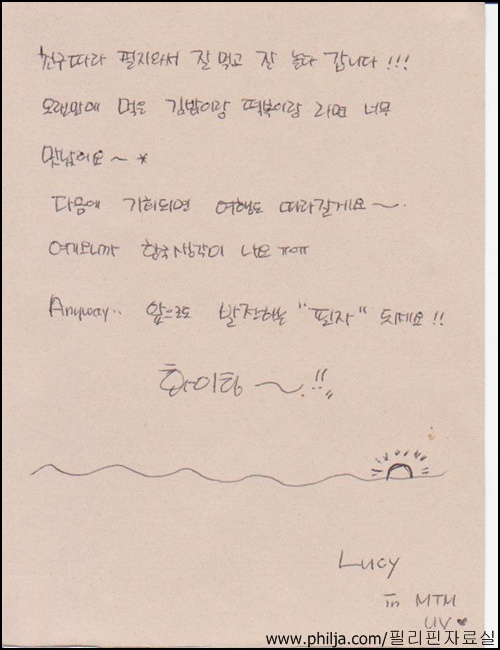 친구따라 필자와서 잘 먹고 잘 놀다 갑니다!!!
오랜만에 먹은 김밥이랑 떡볶이랑 라면 너무
맛났어요~*
다음에 기회되면 여행도 따라갈게요~.
여기오니까 한국생각이 나요 ㅠㅠ
Anyway.. 앞으로도 발전하는 "필자" 되세요!!
화이팅~!!
Lucy
in MTM
UV♥
www.philja.com/필리핀자료실